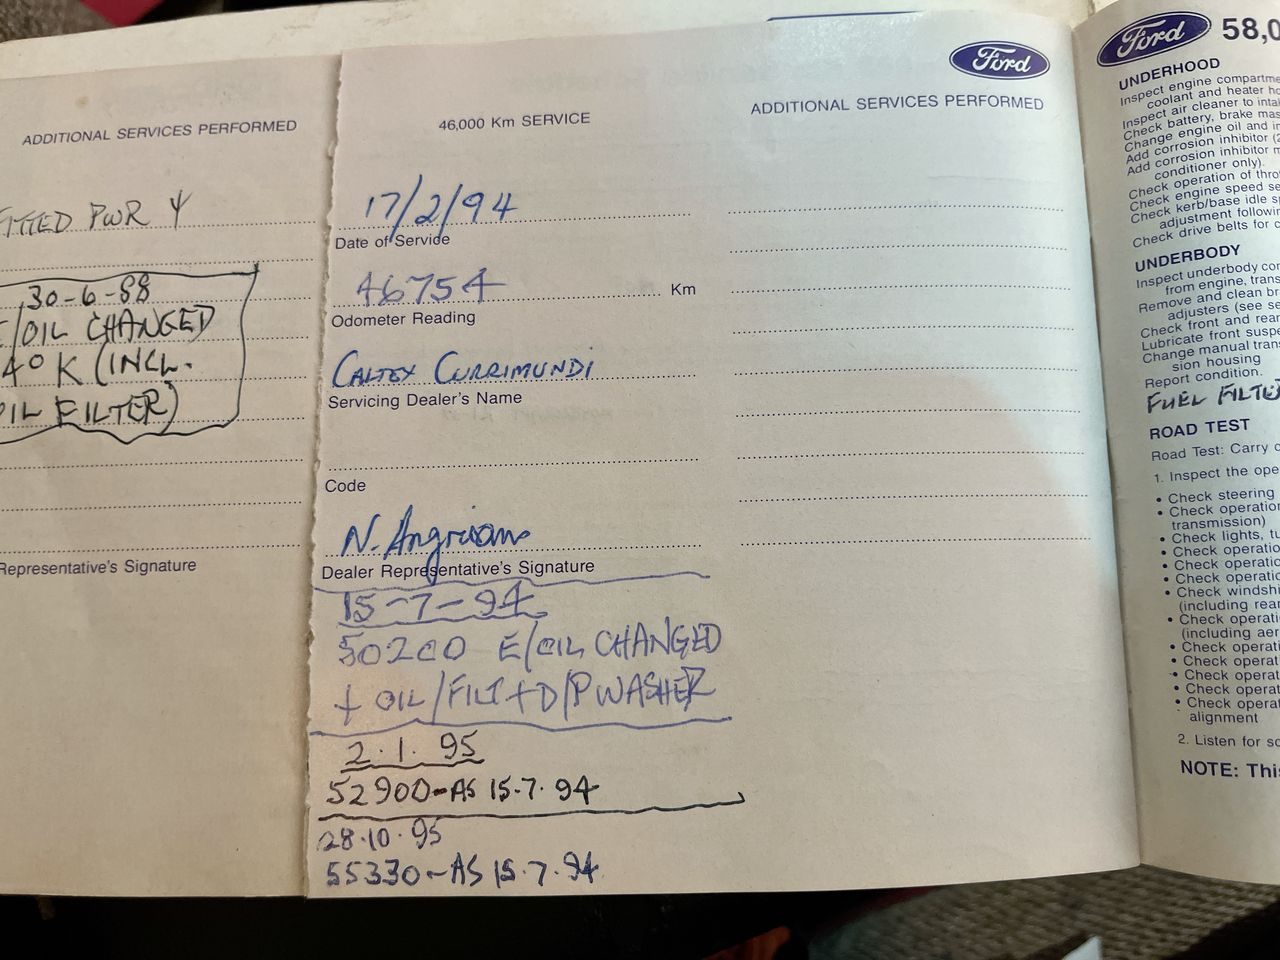 ADDITIONAL SERVICES PERFORMED
FITTED PWR
30-6-88
E/OIL CHANGED
40K (INCL.
OIL FILTER)
Representative's Signature
Ford
46,000 Km SERVICE
17/2/94
Date of Service
46754 Km
Odometer Reading
CALTEX CURRIMUNDI
Servicing Dealer's Name
Code
Dealer Representative's Signature
15-7-94
50200 E/OIL CHANGED
+ OIL/FILT + D/P WASHER
2.1.95
52900-AS 15.7.94
28.10.95
55330-AS 15.7.94
ADDITIONAL SERVICES PERFORMED
Ford 58,0
UNDERHOOD
Inspect engine compartme
coolant and heater ho
Inspect air cleaner to inta
Check battery, brake mas
Change engine oil and
Add corrosion inhibitor (2
Add corrosion inhibitor
conditioner only).
Check operation of thro
Check engine speed se
Check kerb/base idle sp
adjustment followin
Check drive belts for c
UNDERBODY
Inspect underbody con
from engine, trans
Remove and clean br
adjusters (see se
Check front and rear
Lubricate front suspe
Change manual trans
sion housing
Report condition.
FUEL FILTER
ROAD TEST
Road Test: Carry
1. Inspect the ope
• Check steering
• Check operation
transmission)
• Check lights, tu
• Check operatio
• Check operatio
• Check operatio
• Check windshi
(including rear
• Check operati
(including aer
• Check operati
• Check operat
• Check operat
• Check operat
• Check operat
alignment
2. Listen for
NOTE: This